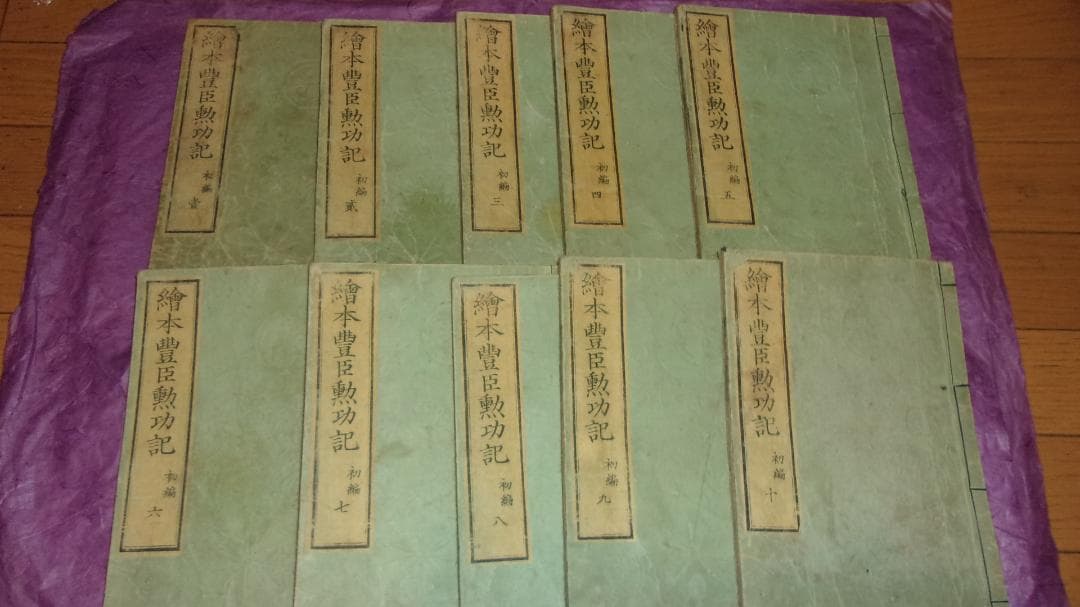 繪本豐臣勲功記 初編 壹
繪本豐臣勲功記 初編 貳
繪本豐臣勲功記 初編 三
繪本豐臣勲功記 初編 四
繪本豐臣勲功記 初編 五
繪本豐臣勲功記 初編 六
繪本豐臣勲功記 初編 七
繪本豐臣勲功記 初編 八
繪本豐臣勲功記 初編 九
繪本豐臣勲功記 初編 十